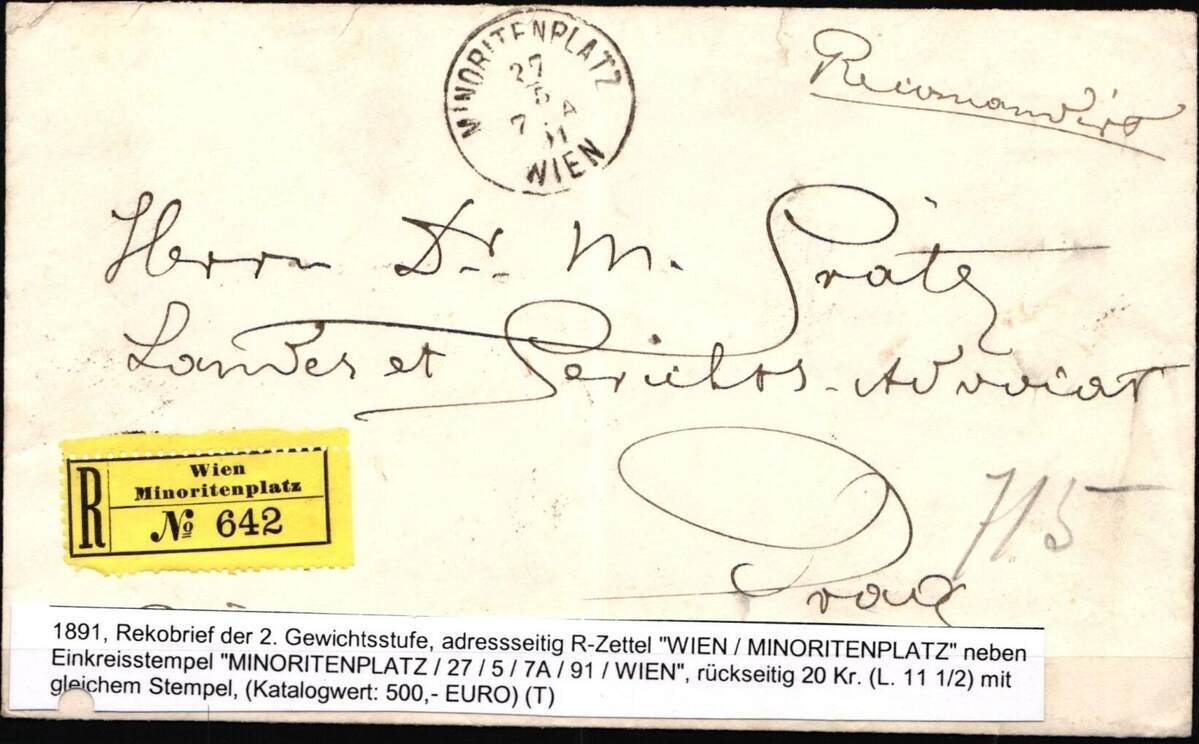 MINORITENPLATZ
27
5
7 A
91
WIEN
Recomandirt
Herrn Dr. M. Gratz
Landes et Gerichts-Advocat
Prag
715
R
Wien
Minoritenplatz
№ 642
1891, Rekobrief der 2. Gewichtsstufe, adressseitig R-Zettel "WIEN / MINORITENPLATZ" neben
Einkreisstempel "MINORITENPLATZ / 27 / 5 / 7A / 91 / WIEN", rückseitig 20 Kr. (L. 11 1/2) mit
gleichem Stempel, (Katalogwert: 500,- EURO) (T)